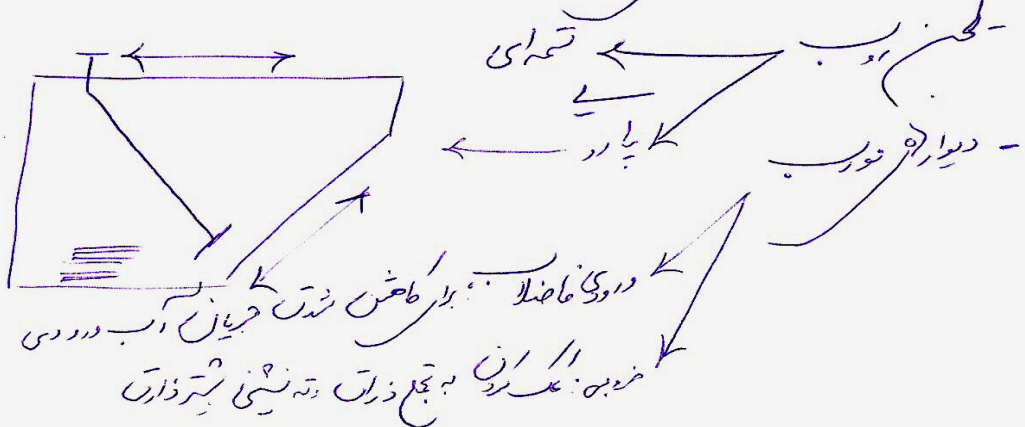 - لجن روب
تسمه‌ای
پارویی
- دیواره مورب
ورودی فاضلاب: برای کاهش شدت جریان آب ورودی
خروجی: کمک کردن به تجمع ذرات و ته نشینی بیشتر ذرات